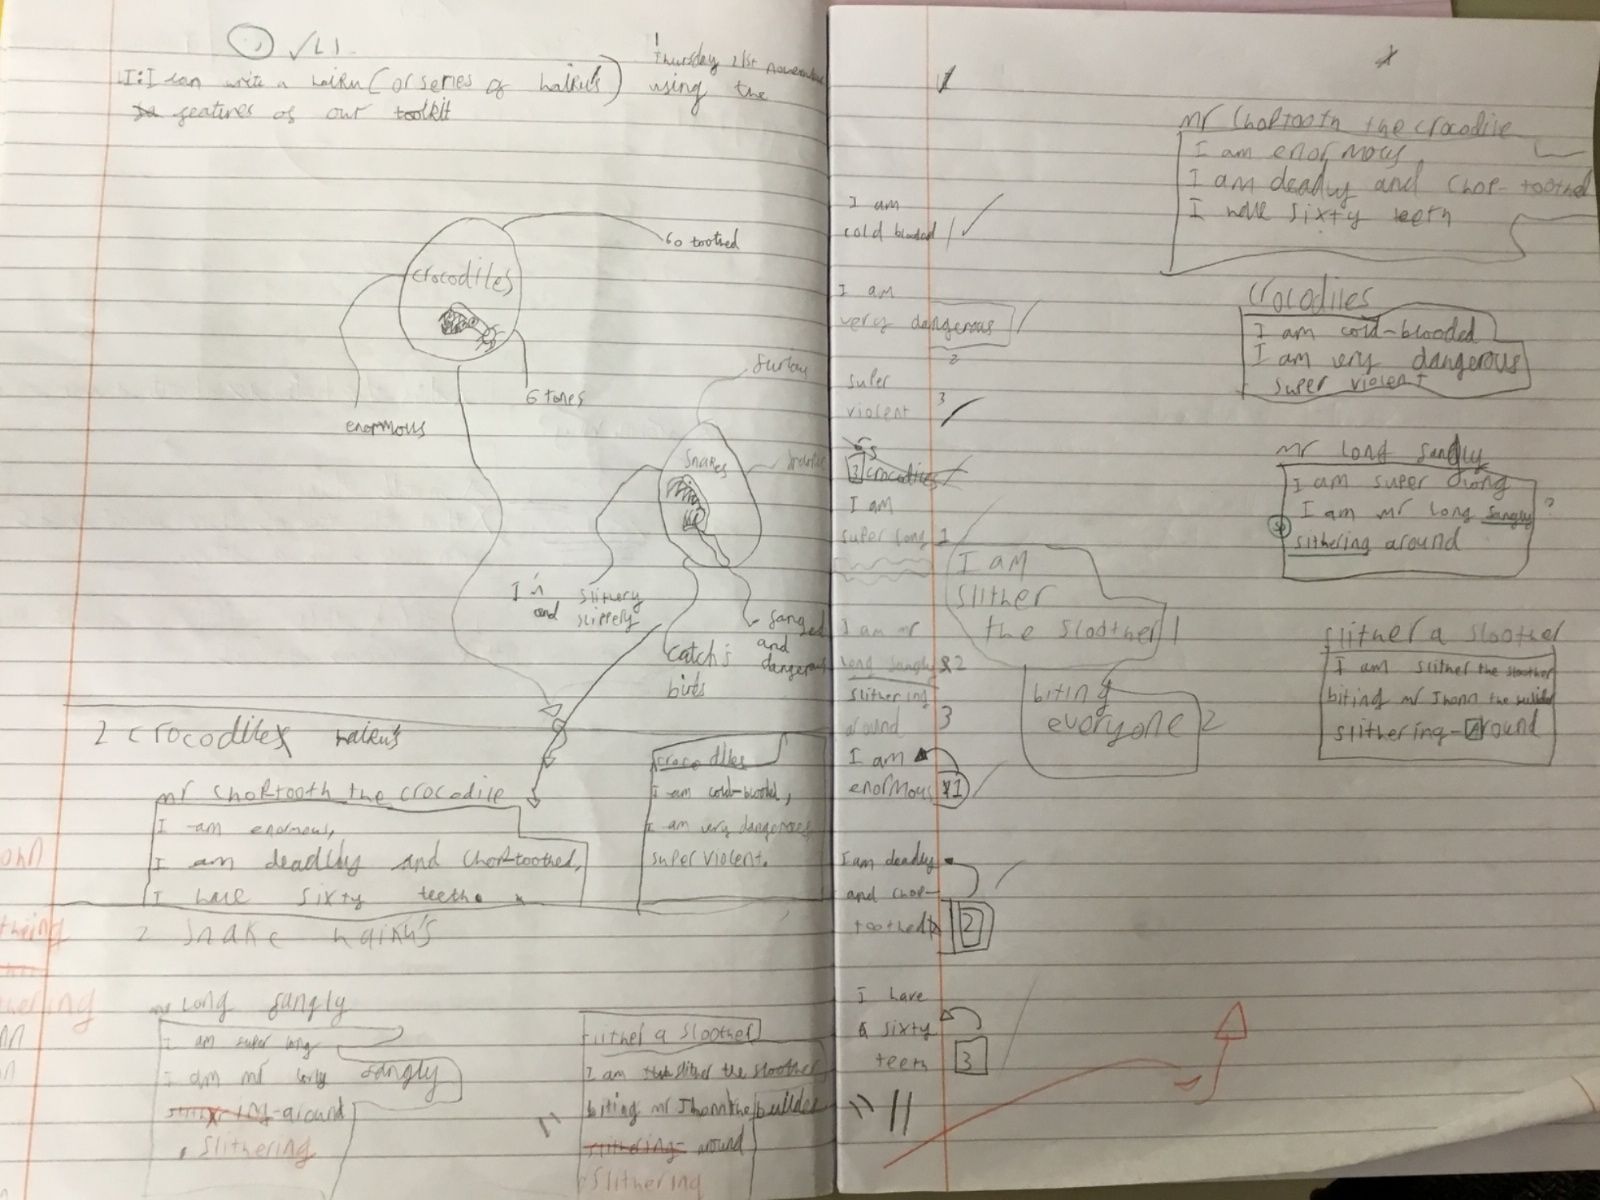 √LI.
Thursday 21st november
I: I can write a haiku (or series of haiku's) using the
features of our toolkit
crocodiles
60 toothed
enormous
6 tones
Snakes
I's
and
slithery
slippery
catch's
birds
fanged
and
dangerous
2 crocodiles haiku's
mr Choptooth the crocodile
I am enormous,
I am deadlly and Chop-toothed,
I have sixty teeth.
crocodiles
I am cold-blooded,
I am very dangerous,
super violent.
2 snake haiku's
mr Long fangly
I am super long
I am mr long fangly
around
slithering
slither a sloother
I am slither the sloother
biting mr Jhonn the builder
slithering- around
slithering
I am
cold blooded
I am
very dangerous
2
super
violent
3
3 crocodiles
I am
super long 1
I am mr
long fangly 2
slithering
around 3
I am
enormous 1
I am deadly
and chop-
toothed 2
I have
sixty
teeth 3
I am
slither
the sloother 1
biting
everyone 2
mr Choptooth the crocodile
I am enormous,
I am deadly and Chop-toothed
I have sixty teeth
Crocodiles
I am cold-blooded
I am very dangerous
super violent
mr long fangly
I am super long
I am mr long fangly ?
sp
slithering around
slither a sloother
I am slither the sloother
biting mr Jhonn the builder
slithering-Around